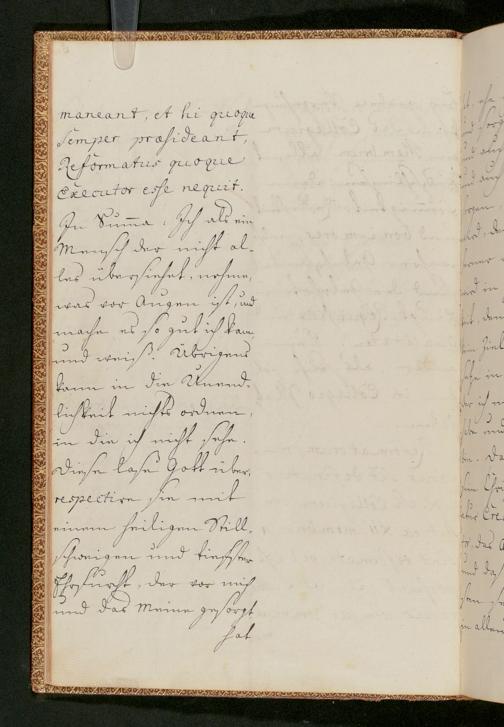 maneant, et hi quoque
semper præsideant,
Reformatus quoque
Executor esse nequit.
In Summa: Ich als ein
Mensch der nicht al-
les übersiehet, nehme,
was vor Augen ist, und
mache es so gut ich kan
und weiß. Übrigens
kann in die Unend-
lichkeit nichts ordnen,
in die ich nicht sehe.
Diese lase Gott über,
respectire sie mit
einem heiligen Still-
schweigen und tiefster
Ehrfurcht, der vor mich
und das Meine gesorgt
hat